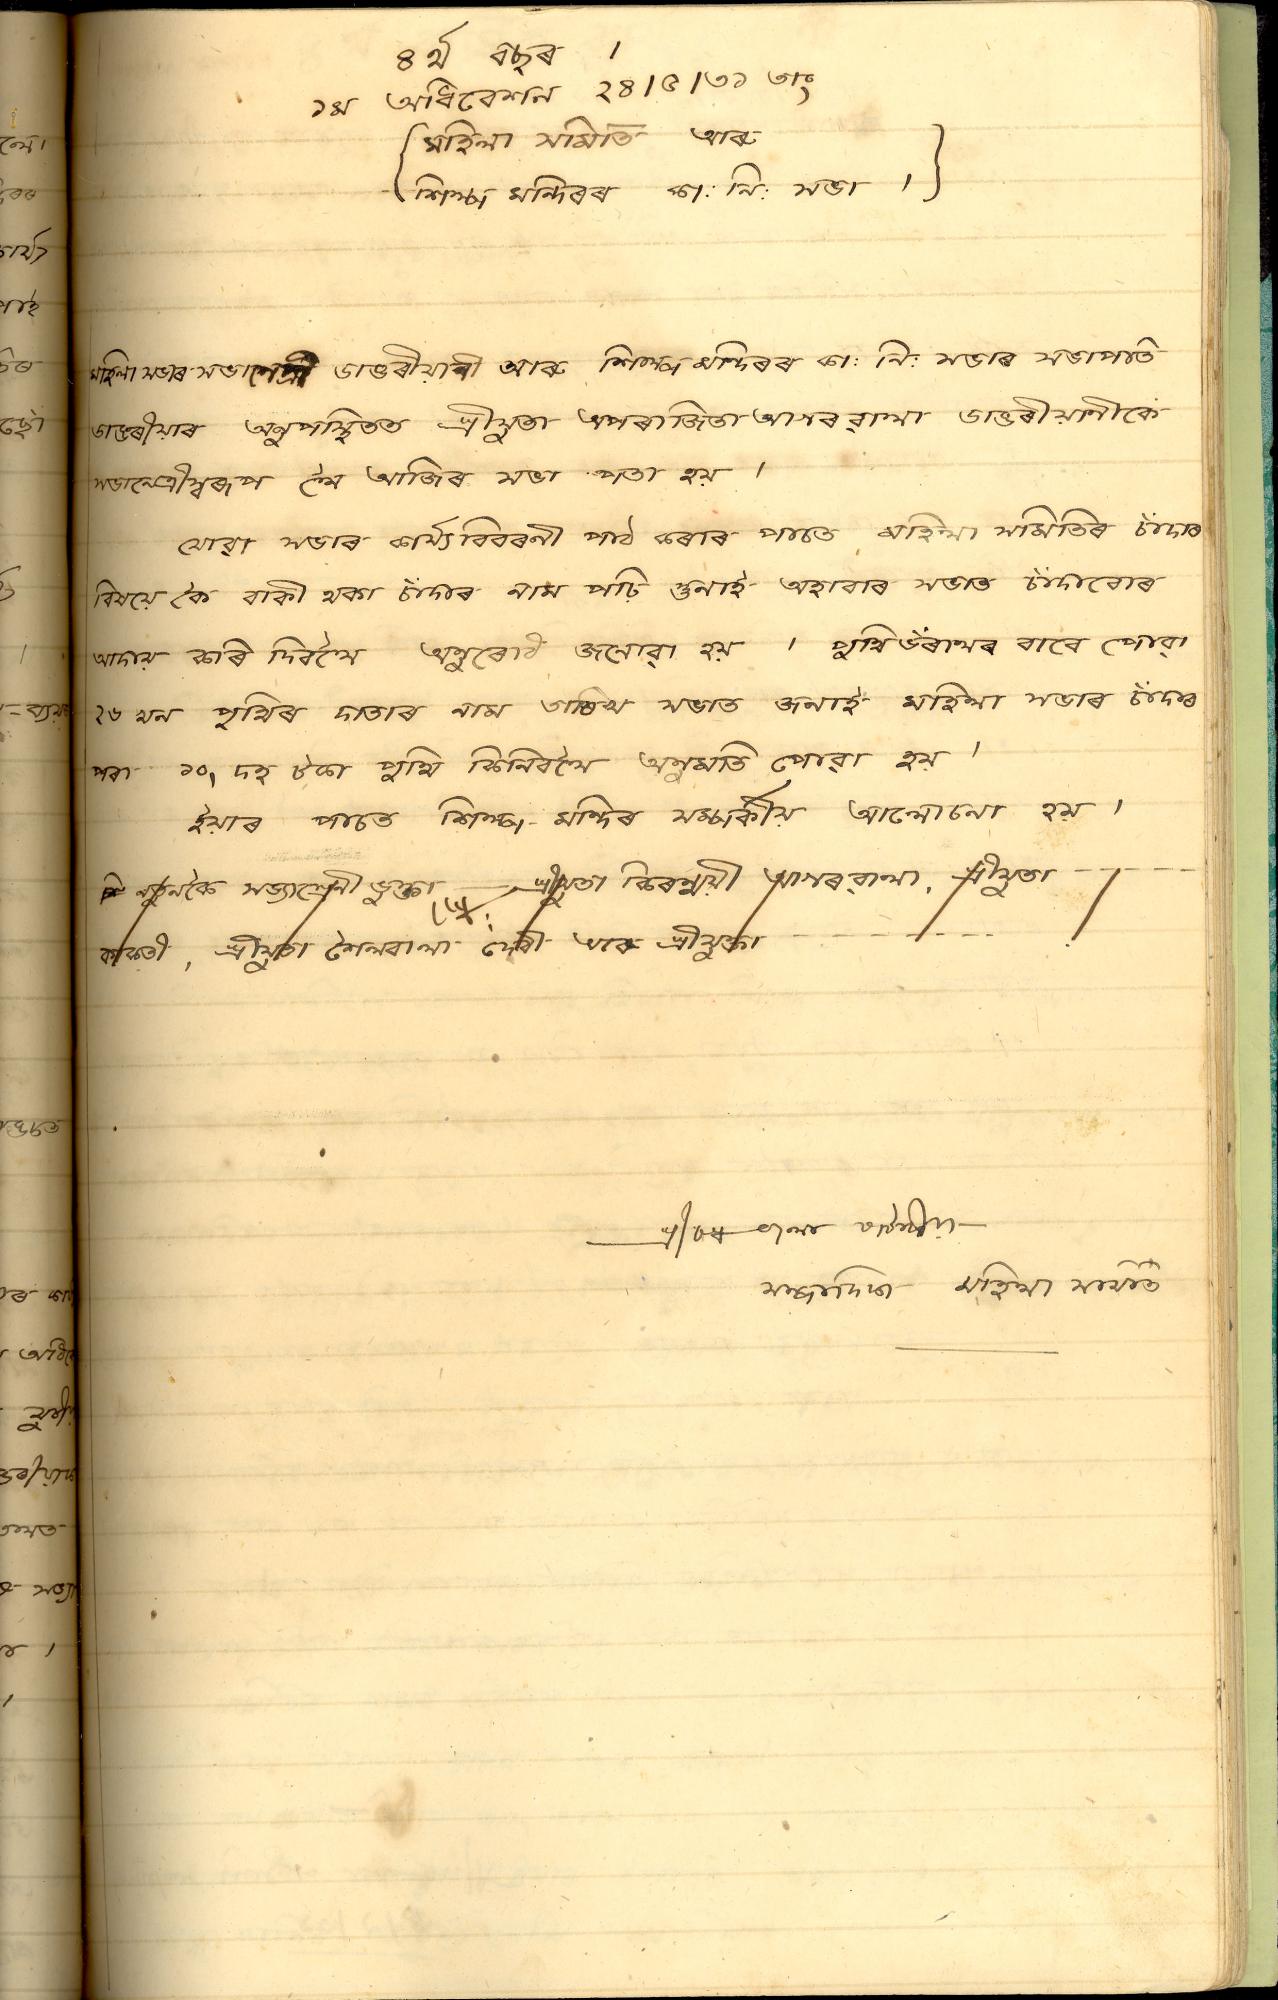 ৪ৰ্থ বছৰ ।
১ম অধিবেশন ২৪।৫।৩১ তাং
{মহিলা সমিতি আৰু
শিল্প মন্দিৰৰ কা: নি: সভা ।}
মহিলা সভাৰ সভানেত্ৰী ডাঙৰীয়ানী আৰু শিল্প মন্দিৰৰ কা: নি: সভাৰ সভাপতি
ডাঙৰীয়াৰ অনুপস্থিতিত শ্ৰীযুতা অপৰাজিতা আগৰৱালা ডাঙৰীয়ানীকে
সভানেত্ৰীস্বৰূপ লৈ আজিৰ সভা পতা হয় ।
যোৱা সভাৰ কাৰ্য্যবিবৰনী পাঠ কৰাৰ পাচত মহিলা সমিতিৰ চাঁদাৰ
বিষয়ে কৈ বাকী থকা চাঁদাৰ নাম পঢ়ি শুনাই অহাবাৰ সভাত চাঁদাবোৰ
আদায় কৰি দিবলৈ অনুৰোধ জনোৱা হয় । পুথিভঁৰালৰ বাবে পোৱা
২৬ খন পুথিৰ দাতাৰ নাম সভাত জনাই মহিলা সভাৰ চাঁদাৰ
পৰা ১০৲ দহ টকা পুথি কিনিবলৈ অনুমতি পোৱা হয় ।
ইয়াৰ পাচত শিল্প মন্দিৰ সম্পৰ্কীয় আলোচনা হয় ।
নতুনকৈ সভ্যাশ্ৰেনী ভুক্তা — শ্ৰীযুতা কিৰন্ময়ী আগৰৱালা, শ্ৰীযুতা - - - -
কাকতী, শ্ৰীযুতা শৈলবালা দেৱী আৰু শ্ৰীযুক্তা - - - -
সম্পাদিকা মহিলা সমিতি